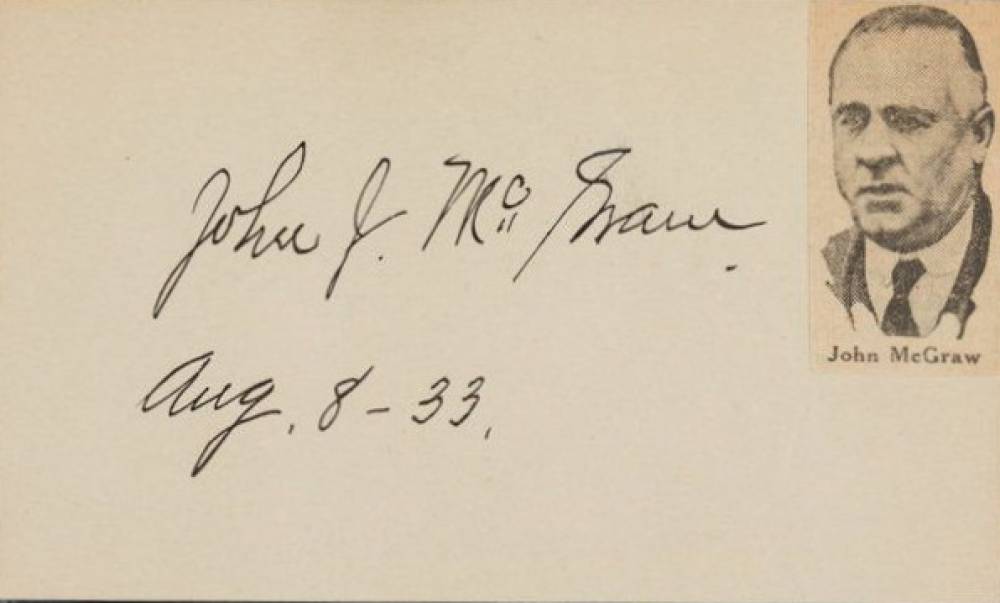 John J. McGraw.
Aug. 8-33.
John McGraw